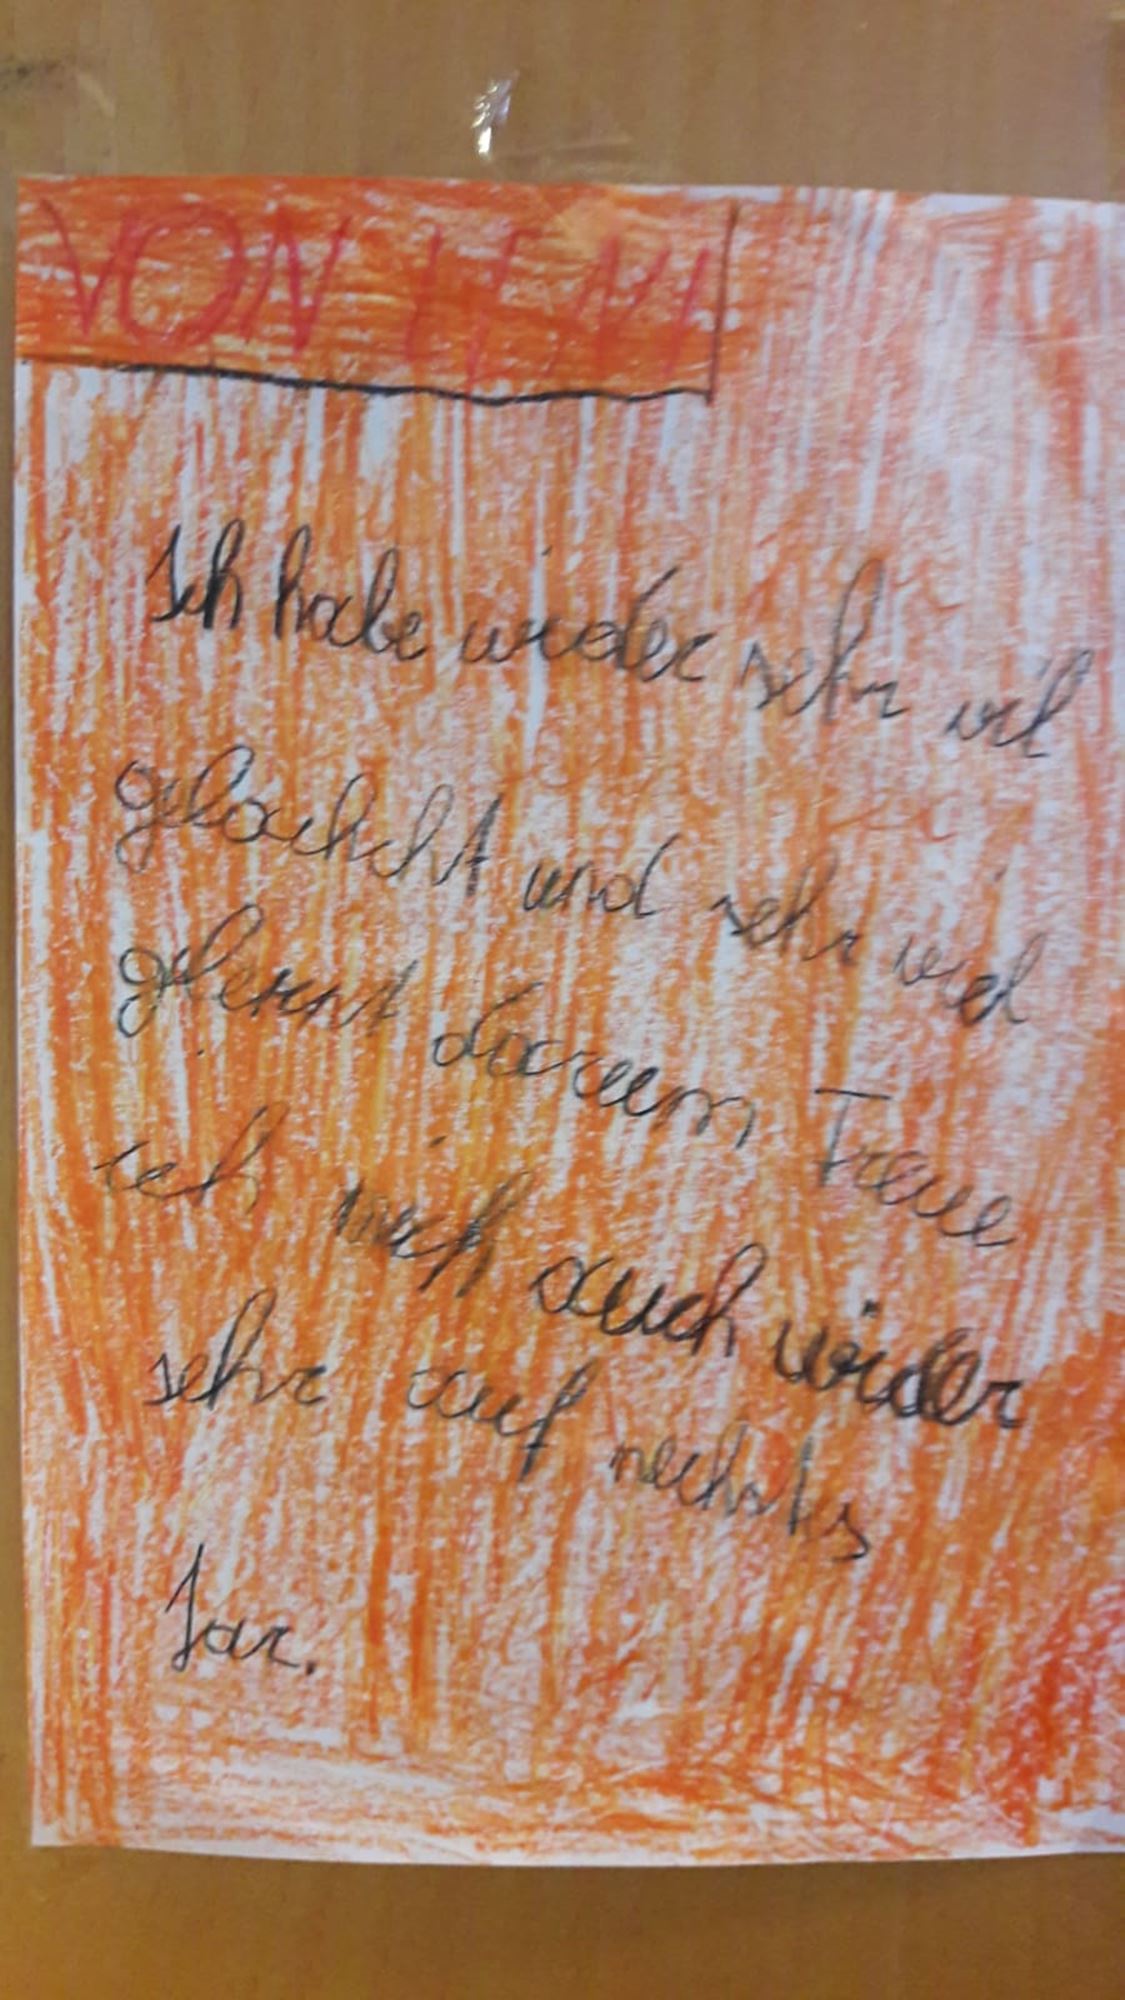 VON
Ich habe wider sehr vil
gelachcht und sehr viel
gelernt darum Freue
ich mich auch wider
sehr auf nechstes
Jar.